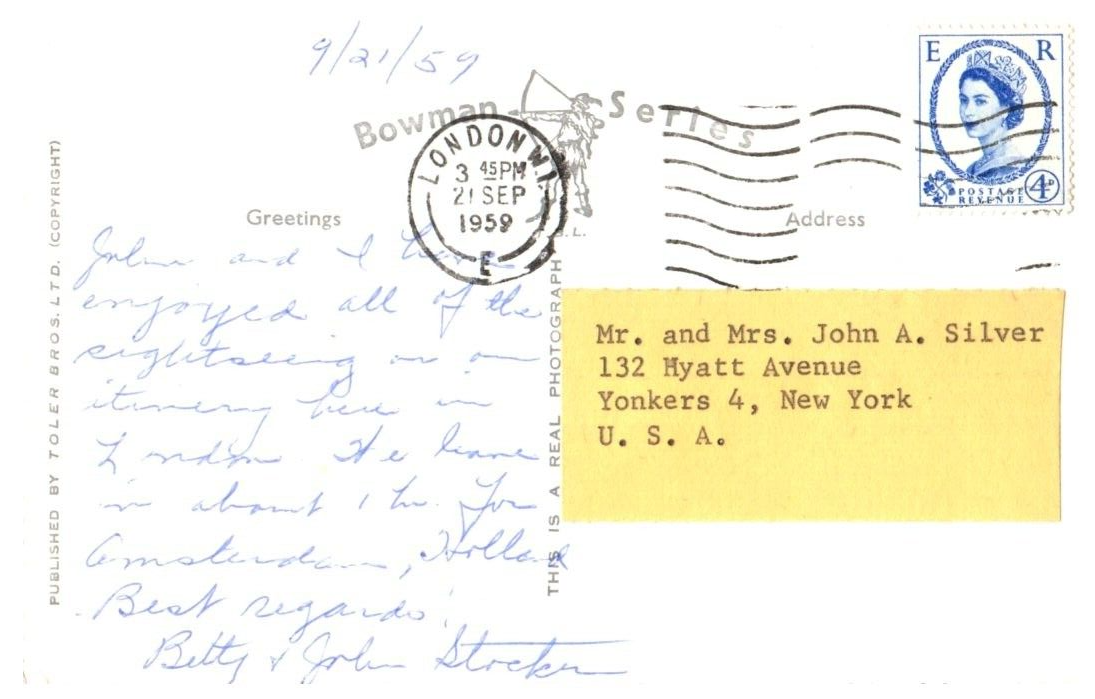 9/21/59
Bowman Series
E R
POSTAGE
REVENUE
4D
LONDON W.1.
3 45PM
21 SEP
1959
E
Greetings
Address
John and I have
enjoyed all of the
sightseeing on our
itinery here in
London. We leave
in about 1 hr. for
Amsterdam, Holland
Best regards!
Betty & John Stocker
Mr. and Mrs. John A. Silver
132 Hyatt Avenue
Yonkers 4, New York
U. S. A.
PUBLISHED BY TOLER BROS. LTD. (COPYRIGHT)
THIS IS A REAL PHOTOGRAPH